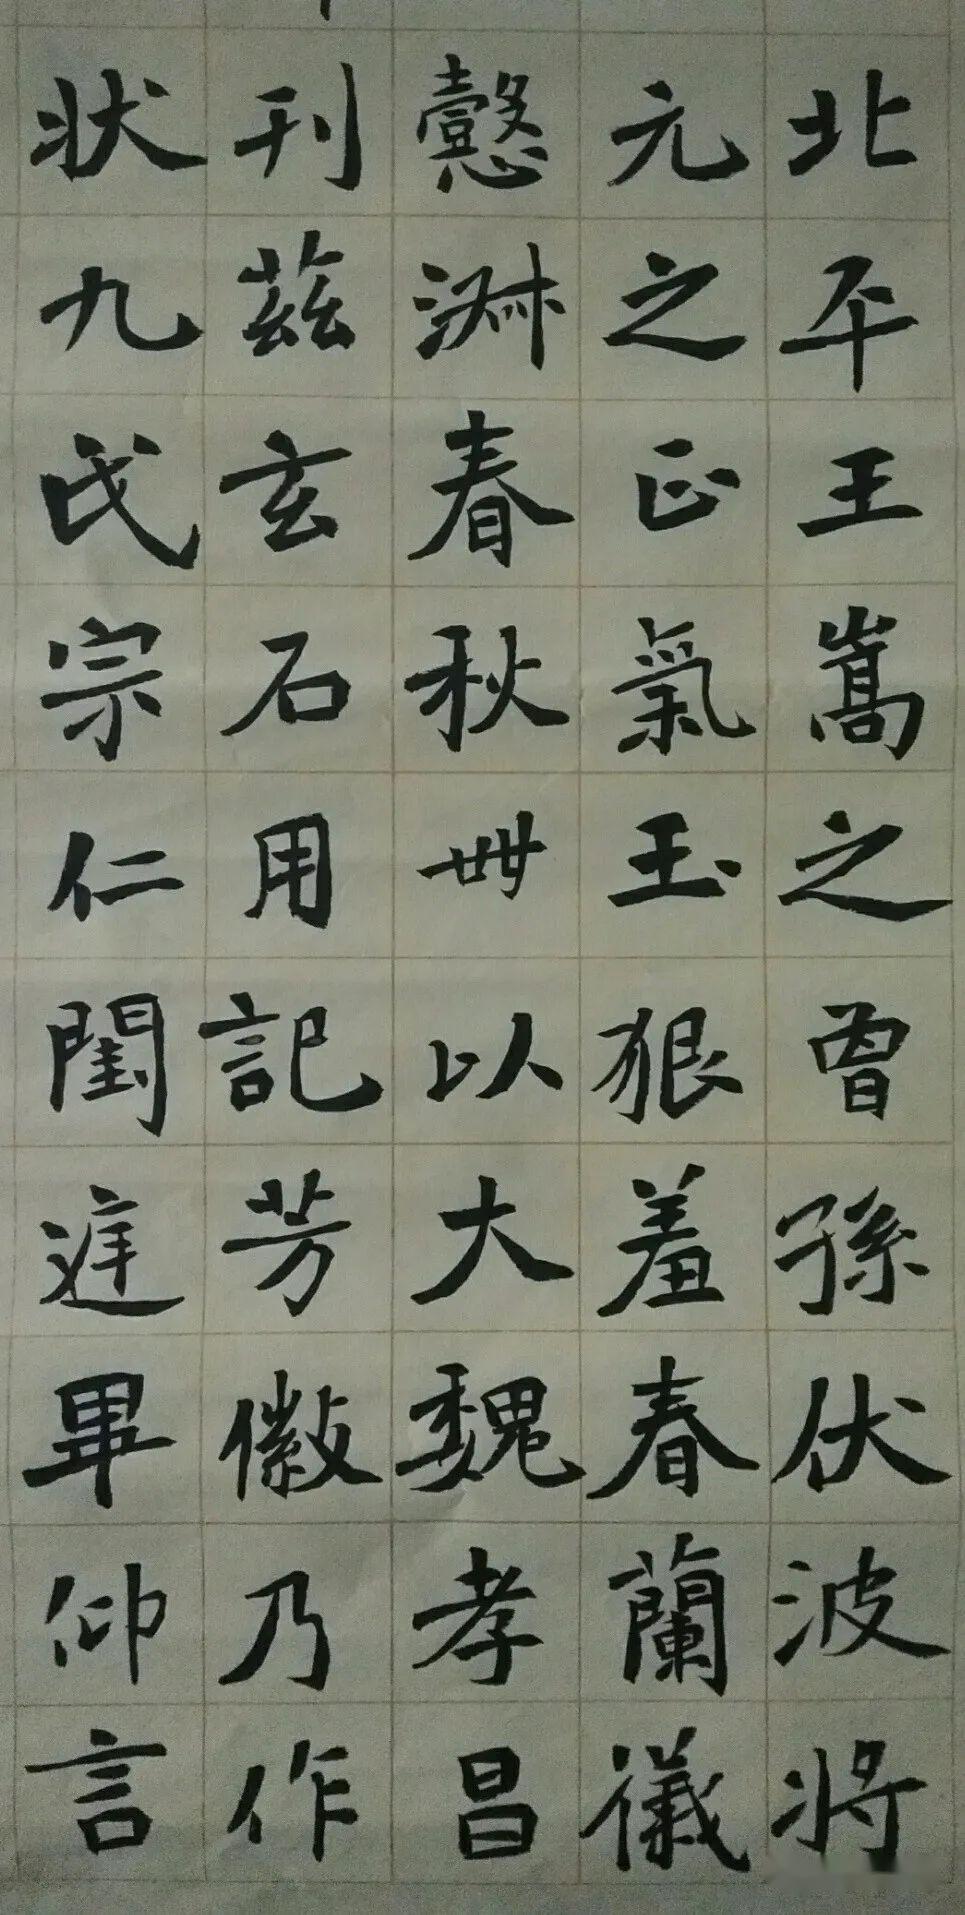 北平王嵩之曾孫伏波將
元之正氣玉狠羞春蘭儀
懿淑春秋卌以大魏孝昌
刊茲玄石用記芳徽乃作
状九氏宗仁閨庭畢仰言